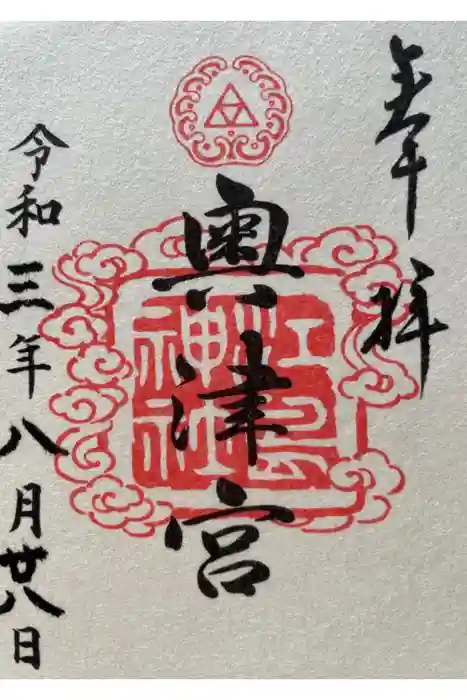 奉拝
奥津宮
江島
神社
令和三年八月廿八日